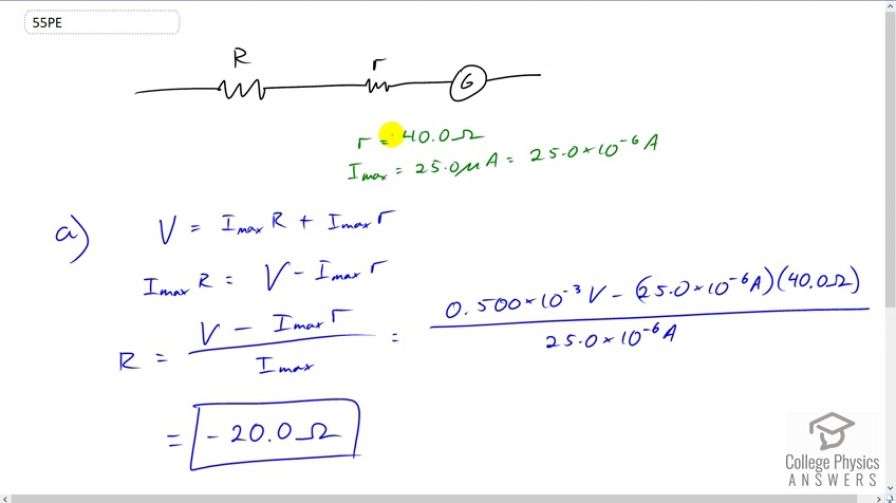 55PE
R r
G
r = 40.0Ω
Imax = 25.0μA = 25.0×10⁻⁶A
a) V = ImaxR + Imaxr
ImaxR = V - Imaxr
R = (V - Imaxr) / Imax = (0.500×10⁻³V - (25.0×10⁻⁶A)(40.0Ω)) / 25.0×10⁻⁶A
= -20.0Ω
College Physics
ANSWERS